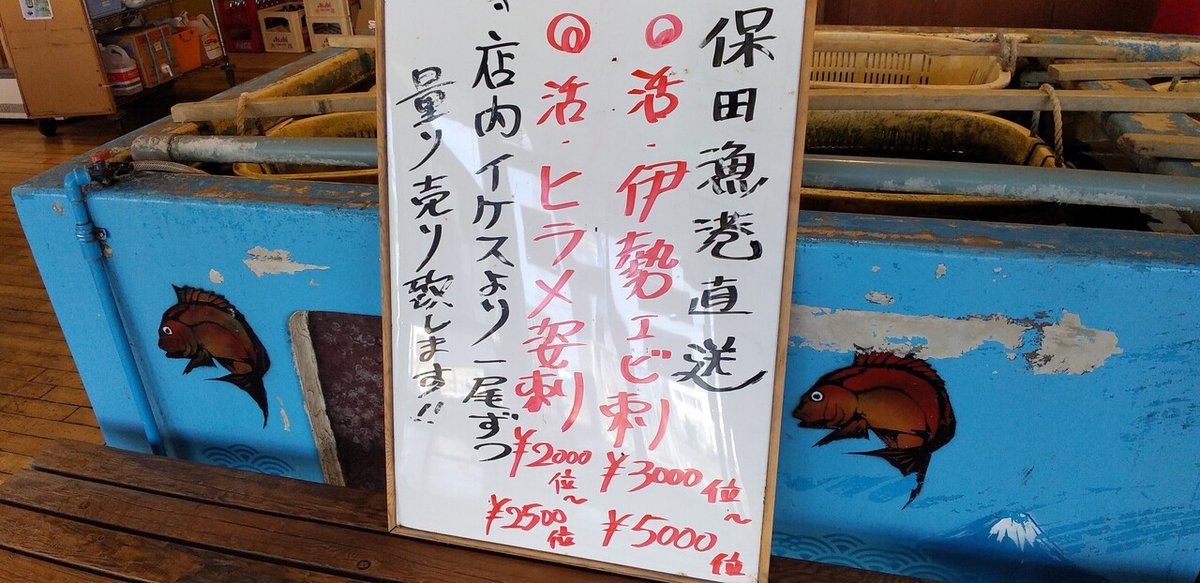 保田漁港直送
◎活・伊勢エビ刺
¥3000位〜
¥5000位
◎活・ヒラメ姿刺
¥2000位〜
¥2500位
店内イケスより一尾ずつ
量り売り致します!!